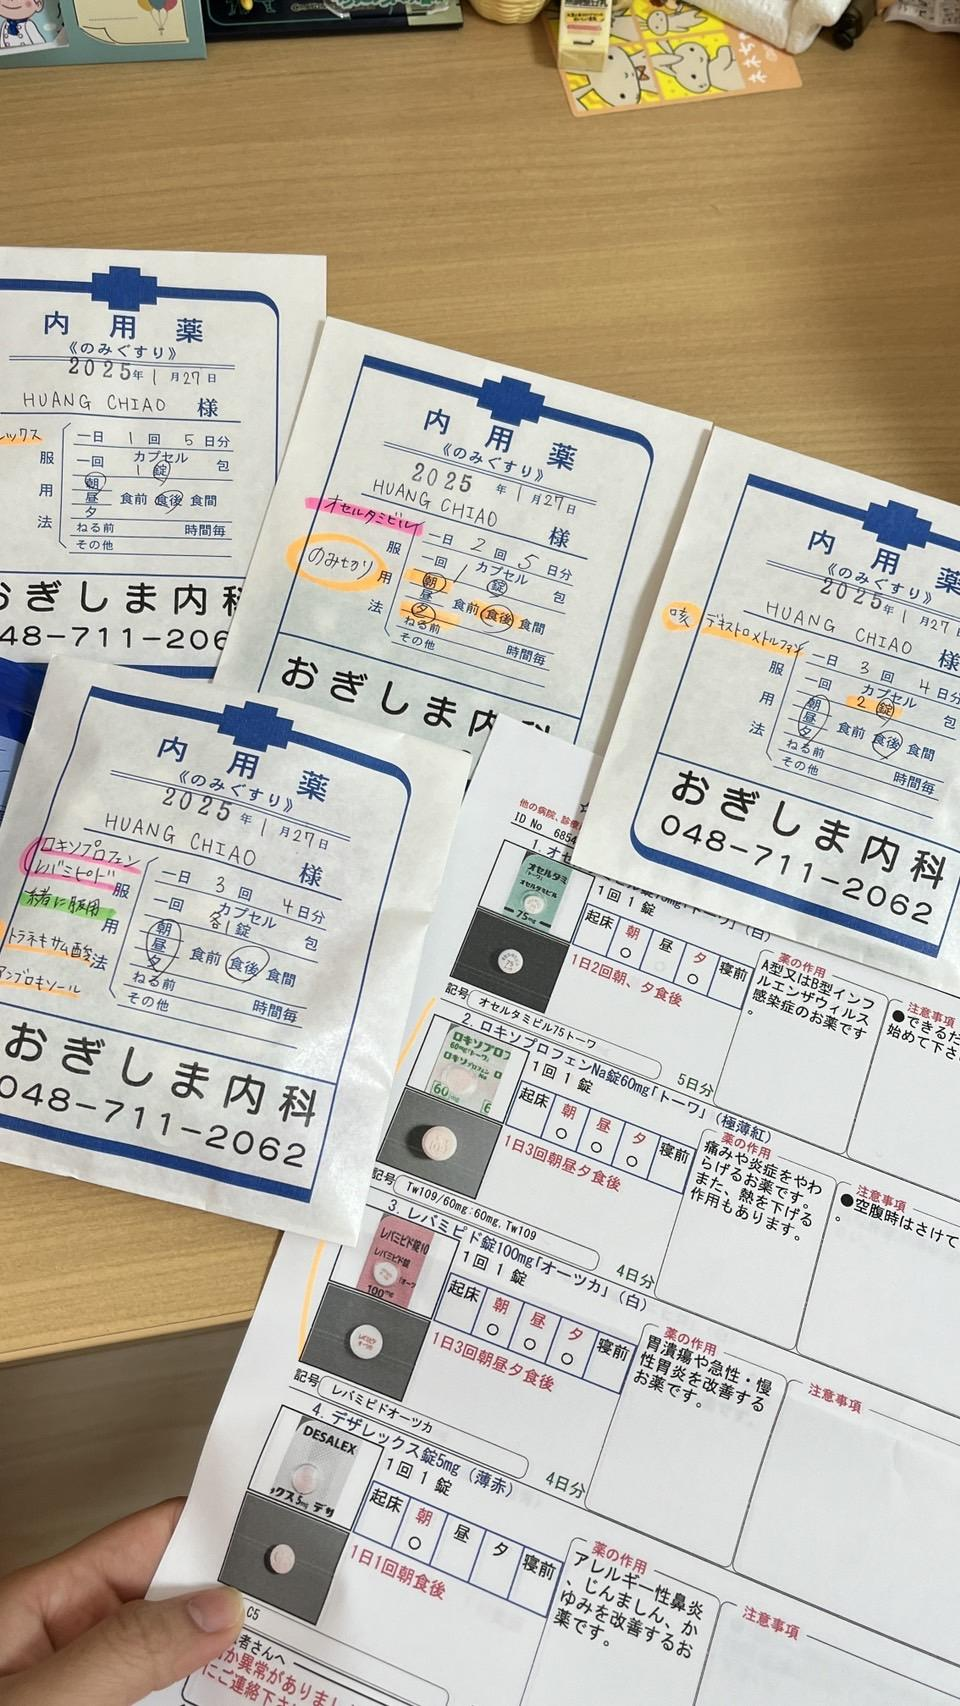 内用薬
《のみぐすり》
2025年1月27日
HUANG CHIAO 様
レックス
服用法
一日 1 回 5 日分
一回 カプセル 1 錠 包
朝 昼 夕 食前 食後 食間
ねる前 時間毎
その他
おぎしま内科
48-711-206
内用薬
《のみぐすり》
2025年1月27日
HUANG CHIAO 様
オセルタミビル
のみきり
服用法
一日 2 回 5 日分
一回 カプセル 1 錠 包
朝 昼 夕 食前 食後 食間
ねる前 時間毎
その他
おぎしま内科
内用薬
《のみぐすり》
2025年1月27日
HUANG CHIAO 様
咳 デキストロメトルファン
服用法
一日 3 回 4 日分
一回 カプセル 2 錠 包
朝 昼 夕 食前 食後 食間
ねる前 時間毎
その他
おぎしま内科
048-711-2062
内用薬
《のみぐすり》
2025年1月27日
HUANG CHIAO 様
ロキソプロフェン
レバミピド
一緒に服用
トラネキサム酸
アンブロキソール
服用法
一日 3 回 4 日分
一回 カプセル 各1 錠 包
朝 昼 夕 食前 食後 食間
ねる前 時間毎
その他
おぎしま内科
048-711-2062
他の病院、診療
ID No 6854
1. オセ
トーワ」(白)
オセルタミ
オセルタミビル
75mg
1回 1 錠
起床 朝 昼 夕 寝前
○ ○
1日2回朝、夕食後
記号 オセルタミビル75トーワ
5日分
薬の作用
A型又はB型インフ
ルエンザウィルス
感染症のお薬です
。
注意事項
●できるだ
始めて下さ
2. ロキソプロフェンNa錠60mg「トーワ」(極薄紅)
ロキソプロフ
60mg「トーワ」
ロキソプロフェン
Na
60mg
1回 1 錠
起床 朝 昼 夕 寝前
○ ○ ○
1日3回朝昼夕食後
記号 Tw109/60mg:60mg,Tw109
4日分
薬の作用
痛みや炎症をやわ
らげるお薬です。
また、熱を下げる
作用もあります。
注意事項
●空腹時はさけて
。
3. レバミピド錠100mg「オーツカ」(白)
レバミピド錠10
レバミピド錠
100mg
1回 1 錠
起床 朝 昼 夕 寝前
○ ○ ○
1日3回朝昼夕食後
記号 レバミピドオーツカ
4日分
薬の作用
胃潰瘍や急性・慢
性胃炎を改善する
お薬です。
注意事項
4. デザレックス錠5mg (薄赤)
DESALEX
ックス5mg デザ
1回 1 錠
起床 朝 昼 夕 寝前
○
1日1回朝食後
C5
薬の作用
アレルギー性鼻炎
、じんましん、か
ゆみを改善するお
薬です。
注意事項
者さんへ
か異常がありまし
にご連絡下さ